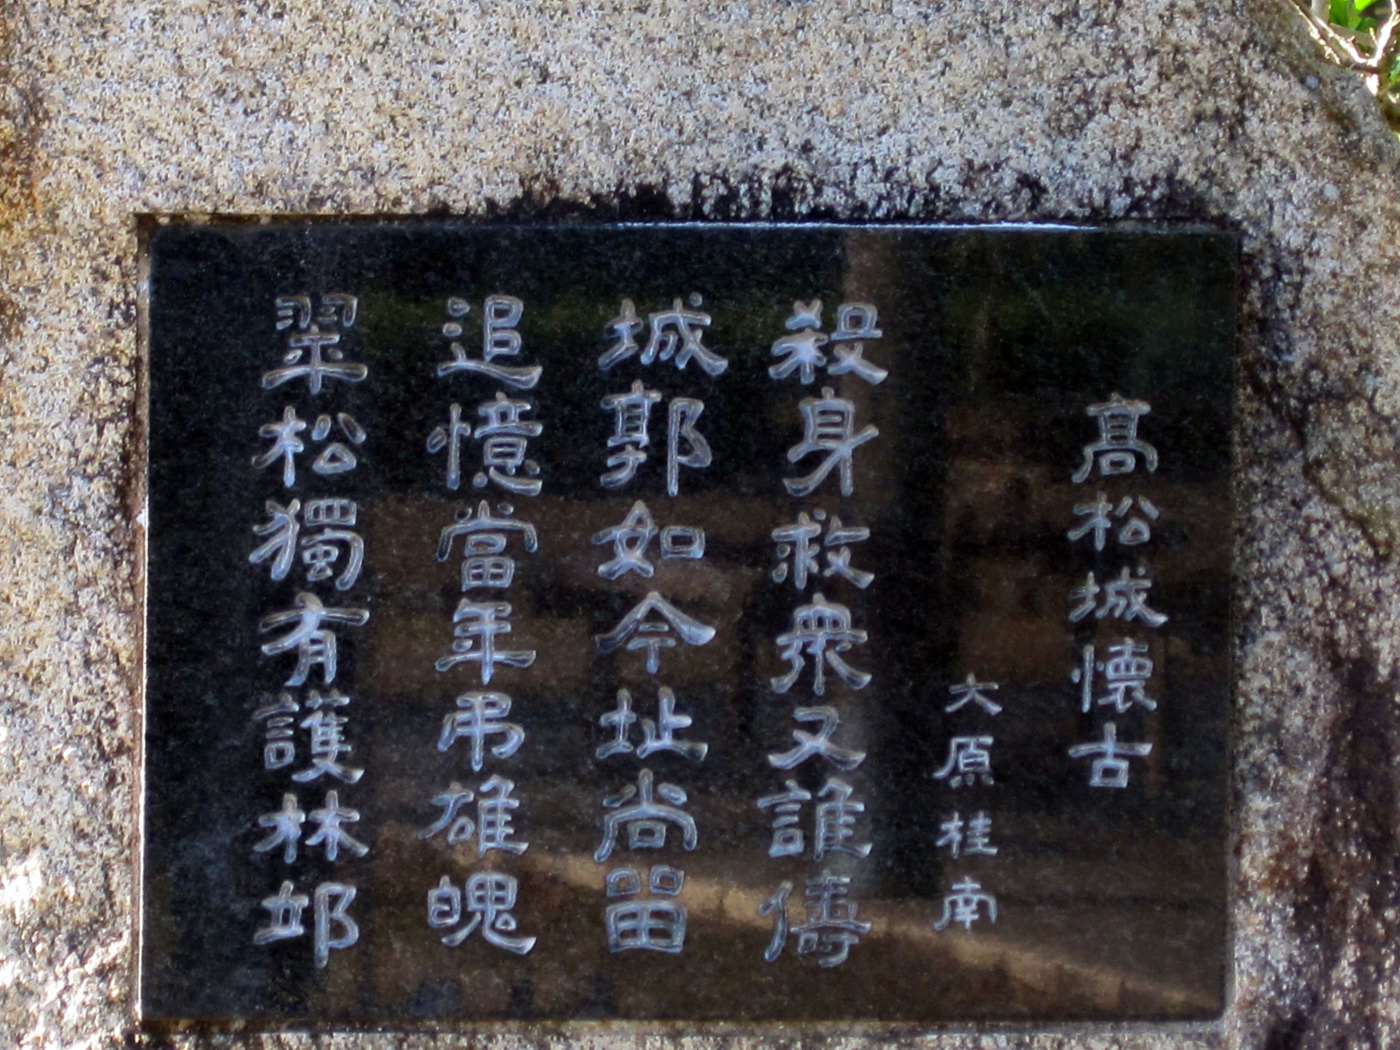 髙松城懐古
大原桂南
殺身救衆又誰儔
城郭如今址尚留
追憶當年弔雄魄
翠松獨有護林邱